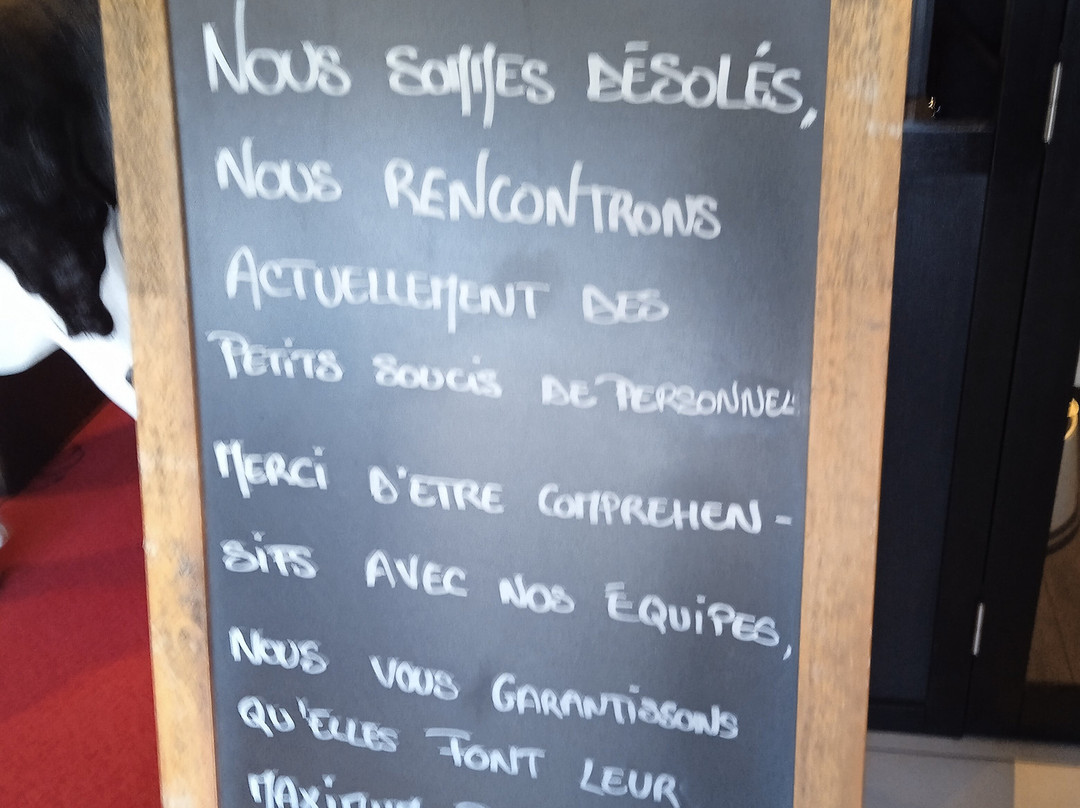 NOUS SOMMES DÉSOLÉS,
NOUS RENCONTRONS
ACTUELLEMENT DES
PETITS SOUCIS DE PERSONNEL
MERCI D'ETRE COMPREHEN-
SIFS AVEC NOS ÉQUIPES,
NOUS VOUS GARANTISSONS
QU'ELLES FONT LEUR
MAXIMUM